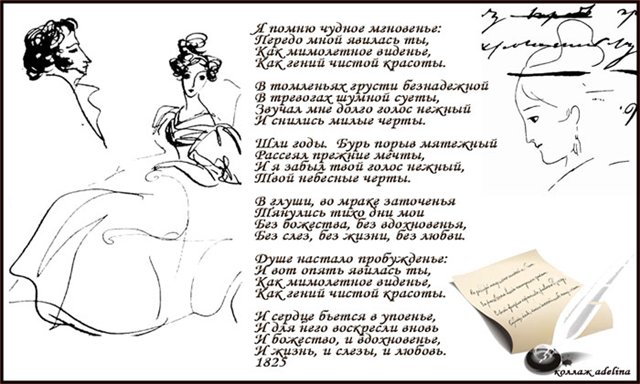 Я помню чудное мгновенье:
Передо мной явилась ты,
Как мимолетное виденье,
Как гений чистой красоты.
В томленьях грусти безнадежной
В тревогах шумной суеты,
Звучал мне долго голос нежный
И снились милые черты.
Шли годы. Бурь порыв мятежный
Рассеял прежние мечты,
И я забыл твой голос нежный,
Твой небесные черты.
В глуши, во мраке заточенья
Тянулись тихо дни мои
Без божества, без вдохновенья,
Без слез, без жизни, без любви.
Душе настало пробужденье:
И вот опять явилась ты,
Как мимолетное виденье,
Как гений чистой красоты.
И сердце бьется в упоенье,
И для него воскресли вновь
И божество, и вдохновенье,
И жизнь, и слезы, и любовь.
1825
коллаж adelina